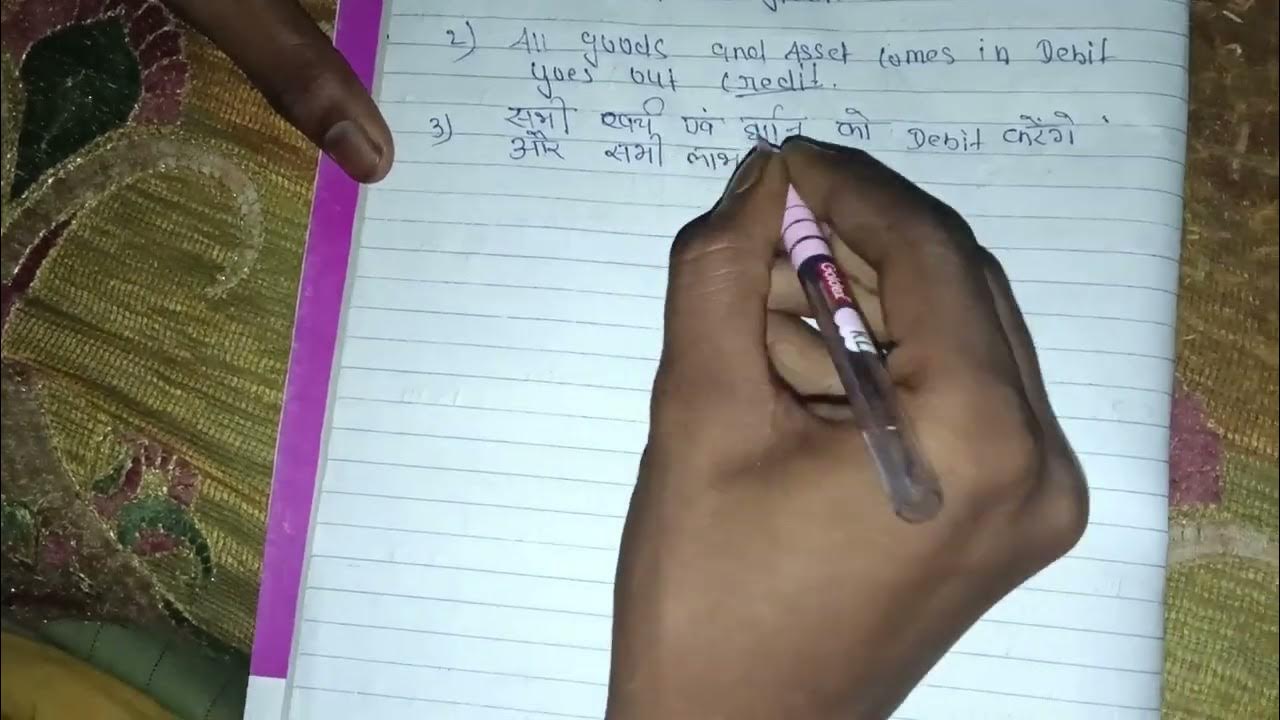 2) All goods and Asset comes in Debit
goes out credit.
3) सभी खर्च एवं हानि को Debit करेंगे
और सभी लाभ
Goldex